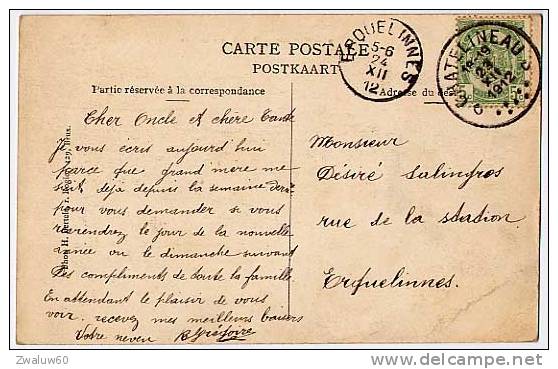 CARTE POSTALE
POSTKAART
Partie réservée à la correspondance
Adresse du des
ERQUELINNES
5-6
24
XII
12
CHATELINEAU
1912
5c
Cher Oncle et chère Tante
Je vous écris aujourd'hui
parce que grand mère me
suit déja depuis la semaine dern
pour vous demander si vous
reviendrez le jour de la nouvelle
année ou le dimanche suivant
Des compliments de toute la famille
En attendant le plaisir de vous
voir recevez mes meilleurs baisers
Votre neveu R Grégoire
Monsieur
Désiré Salingros
rue de la station
Erquelinnes.
Zwaluw60
delcampe.net